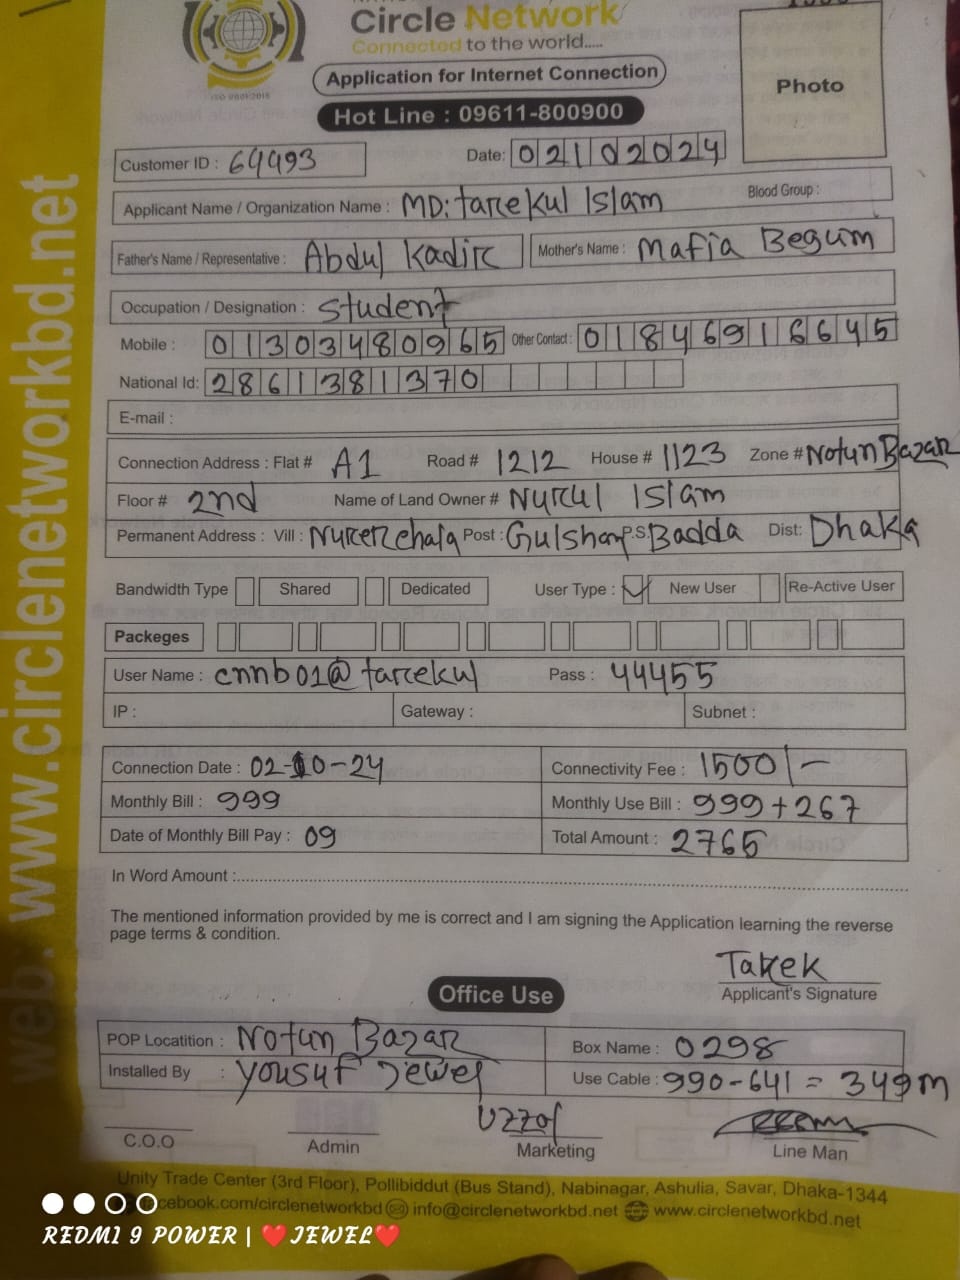 Circle Network
Connected to the world.....
ISO 9001:2015
Application for Internet Connection
Hot Line : 09611-800900
Photo
Customer ID : 64493
Date: 02102024
Applicant Name / Organization Name : MD: tarekul Islam Blood Group :
Father's Name / Representative : Abdul Kadir Mother's Name : Mafia Begum
Occupation / Designation : Student
Mobile : 01303480965 Other Contact : 01846916645
National Id: 2861381370
E-mail :
Connection Address : Flat # A1 Road # 1212 House # 1123 Zone # Notun Bazar
Floor # 2nd Name of Land Owner # Nurul Islam
Permanent Address : Vill : Nurerchala Post : Gulshan P.S. Badda Dist: Dhaka
Bandwidth Type Shared Dedicated User Type : New User Re-Active User
Packeges
User Name : cnnb01@tarekul Pass : 44455
IP : Gateway : Subnet :
Connection Date : 02-10-24 Connectivity Fee : 1500/-
Monthly Bill : 999 Monthly Use Bill : 999+267
Date of Monthly Bill Pay : 09 Total Amount : 2765
In Word Amount :
The mentioned information provided by me is correct and I am signing the Application learning the reverse
page terms & condition.
Tarek
Applicant's Signature
Office Use
POP Locatition : Notun Bazar Box Name : 0298
Installed By : Yousuf Jewel Use Cable : 990-641 = 349m
Uzzol
C.O.O Admin Marketing Line Man
Unity Trade Center (3rd Floor), Pollibiddut (Bus Stand), Nabinagar, Ashulia, Savar, Dhaka-1344
cebook.com/circlenetworkbd info@circlenetworkbd.net www.circlenetworkbd.net
web: www.circlenetworkbd.net
REDMI 9 POWER | ❤️JEWEL❤️